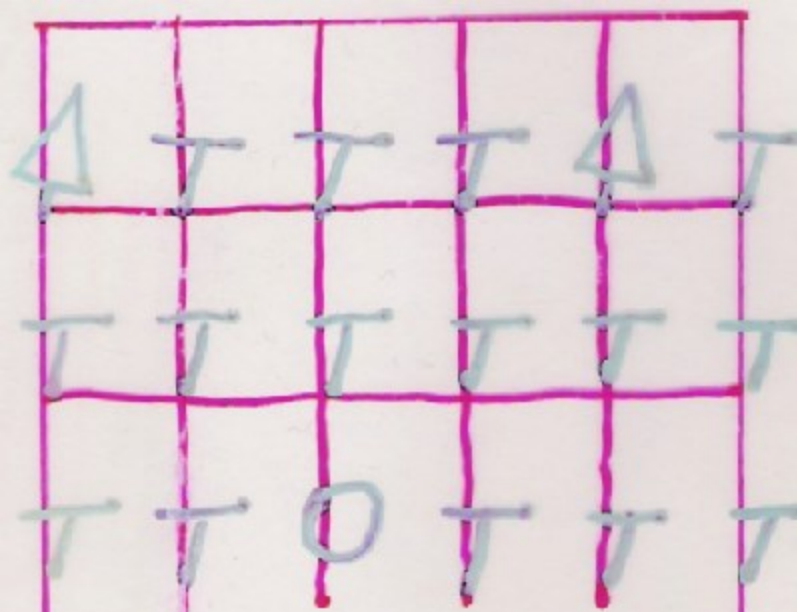 Δ T T T Δ T
T T T T T T
T T O T T T